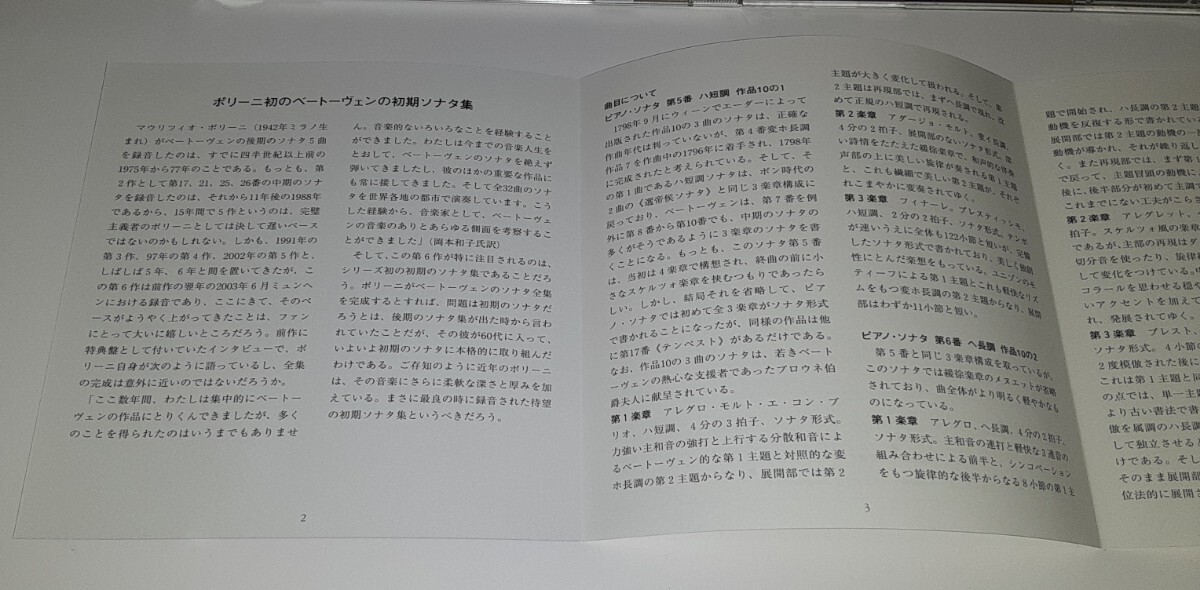 ポリーニ初のベートーヴェンの初期ソナタ集
マウリツィオ・ポリーニ(1942年ミラノ生
まれ)がベートーヴェンの後期のソナタ5曲
を録音したのは、すでに四半世紀以上前の
1975年から77年のことである。もっとも、第
2作として第17、21、25、26番の中期のソナ
タを録音したのは、それから11年後の1988年
であるから、15年間で5作というのは、完璧
主義者のポリーニとしては決して遅いペース
ではないのかもしれない。しかも、1991年の
第3作、97年の第4作、2002年の第5作と、
しばしば5年、6年と間を置いてきたが、こ
の第6作は前作の翌年の2003年6月ミュンヘ
ンにおける録音であり、ここにきて、そのペ
ースがようやく上がってきたことは、ファン
にとって大いに嬉しいところだろう。前作に
特典盤として付いていたインタビューで、ポ
リーニ自身が次のように語っているし、全集
の完成は意外に近いのではないだろうか。
「ここ数年間、わたしは集中的にベートー
ヴェンの作品にとりくんできましたが、多く
のことを得られたのはいうまでもありませ
ん。音楽的ないろいろなことを経験すること
ができました。わたしは今までの音楽人生を
とおして、ベートーヴェンのソナタを絶えず
弾いてきましたし、彼のほかの重要な作品に
も常に接してきました。そして全32曲のソナ
タを世界各地の都市で演奏しています。こう
した経験から、音楽家として、ベートーヴェ
ンの音楽のありとあらゆる側面を考察するこ
とができました」(岡本和子氏訳)
そして、この第6作が特に注目されるのは、
シリーズ初の初期のソナタ集であることだろ
う。ポリーニがベートーヴェンのソナタ全集
を完成するとすれば、問題は初期のソナタだ
ろうとは、後期のソナタ集が出た時から言わ
れていたことだが、その彼が60代に入って、
いよいよ初期のソナタに本格的に取り組んだ
わけである。ご存知のように近年のポリーニ
は、その音楽にさらに柔軟な深さと厚みを加
えている。まさに最良の時に録音された待望
の初期ソナタ集というべきだろう。
2
曲目について
ピアノ・ソナタ 第5番 ハ短調 作品10の1
1798年9月にウィーンでエーダーによって
出版された作品10の3曲のソナタは、正確な
作曲年代は判っていないが、第4番変ホ長調
作品7を作曲中の1796年に着手され、1798年
に完成されたと考えられている。そして、そ
の第1曲であるハ短調ソナタは、ボン時代の
2曲の《選帝候ソナタ》と同じ3楽章構成に
戻っており、ベートーヴェンは、第7番を例
外に第8番から第10番でも、中期のソナタの
多くがそうであるように3楽章のソナタを書
くことになる。もっとも、このソナタ第5番
は、当初は4楽章で構想され、終曲の前に小
さなスケルツォ楽章を挟むつもりであったら
しい。しかし、結局それを省略して、ピア
ノ・ソナタでは初めて全3楽章がソナタ形式
で書かれることになったが、同様の作品は他
に第17番《テンペスト》があるだけである。
なお、作品10の3曲のソナタは、若きベート
ーヴェンの熱心な支援者であったブロウネ伯
爵夫人に献呈されている。
第1楽章 アレグロ・モルト・エ・コン・ブ
リオ、ハ短調、4分の3拍子、ソナタ形式。
力強い主和音の強打と上行する分散和音によ
るベートーヴェン的な第1主題と対照的な変
ホ長調の第2主題からなり、展開部では第2
主題が大きく変化して扱われる。そして、第
2主題は再現部では、まずヘ長調で現れ、改
めて正規のハ短調で再現される。
第2楽章 アダージョ・モルト、変イ長調、
4分の2拍子、展開部のないソナタ形式。深
い詩情をたたえた緩徐楽章で、和声的な伴奏
声部の上に美しい旋律が奏される第1主題
と、これも繊細で美しい第2主題が、それぞ
れこまやかに変奏されてゆく。
第3楽章 フィナーレ。プレスティッシモ、
ハ短調、2分の2拍子、ソナタ形式。テンポ
が速いうえに全体も122小節と短いが、完備
したソナタ形式で書かれており、美しく個
性にとんだ楽想をもっている。ユニゾンのモ
ティーフによる第1主題とこれも軽快なリズ
ムをもつ変ホ長調の第2主題からなり、展開
部はわずか11小節と短い。
ピアノ・ソナタ 第6番 ヘ長調 作品10の2
第5番と同じ3楽章構成を取っているが、
このソナタでは緩徐楽章のメヌエットが省略
されており、曲全体がより明るく軽やかなも
のになっている。
第1楽章 アレグロ、ヘ長調、4分の2拍子、
ソナタ形式。主和音の連打と軽快な3連音の
組み合わせによる前半と、シンコペーション
をもつ旋律的な後半からなる8小節の第1主
3
題で開始され、ハ長調の第2主
動機を反復する形で書かれて
展開部では第2主題の動機の一
動機が導かれ、それが繰り返し
く。また再現部では、まず第1
で戻って、主題冒頭の動機によ
後に、後半部分が初めて主調
これまでにない工夫がこらさ
第2楽章 アレグレット、
拍子。スケルツォ風の楽章
であるが、主部の再現はダ
切分音を使ったり、旋律
して変化をつけている。
コラールを思わせる穏や
いアクセントを加えて
れ、発展されてゆく。
第3楽章 プレスト、
ソナタ形式。4小節の
2度模倣された後に
これは第1主題と同
の点では、単一主題
より古い書法で書
倣を属調のハ長調
して独立させると
けである。そし
そのまま展開部
位法的に展開さ